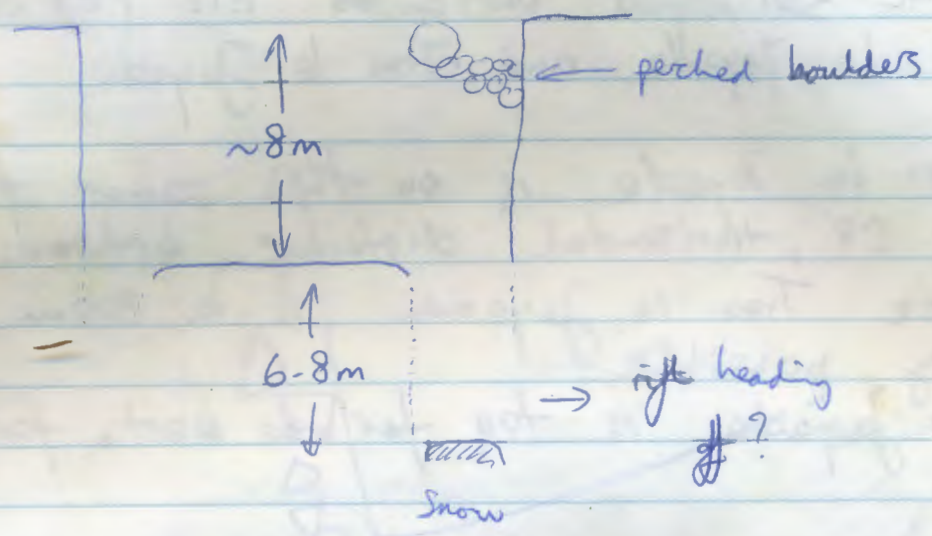 perched boulders
~8m
6-8m
rift heading
off?
Snow